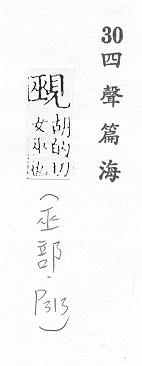 30四聲篇海
覡
胡的切
女巫也
(巫部.P313)